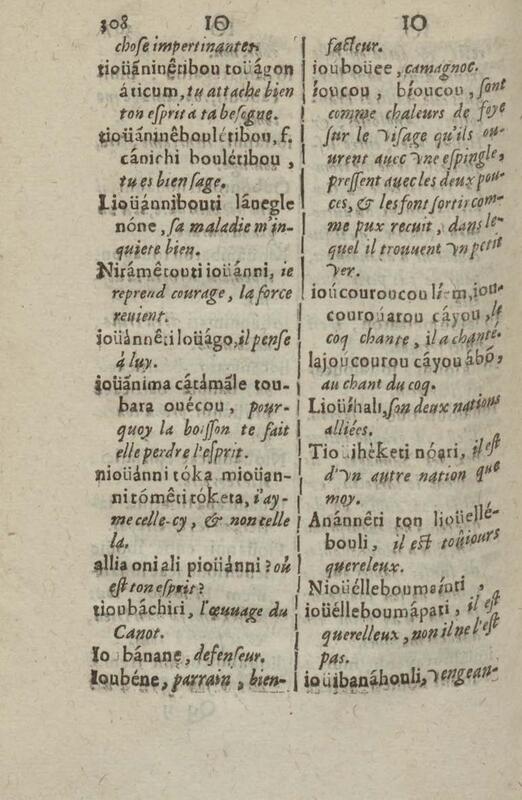 308 IO IO
chose impertinantes.
tioüánínêtibou toüágon
áticum, tu attache bien
ton esprit a ta besogne.
tioüáninêboulétibou, f.
cánichi boulétibou,
tu es bien sage.
Lioüánnibouti lánegle
nóne, sa maladie m'in-
quiete bien.
Nirámêtouti ioüánni, ie
reprend courage, la force
reuient.
ioüánnêti loüágo, il pense
á luy.
ioüánima cátámále tou-
bara ouécou, pour-
quoy la boisson te fait
elle perdre l'esprit.
nioüánni tóka mioüan-
ni tómêti tóketa, i'ay-
me celle-cy, & non celle
la.
allia oniali pioüánni? où
est ton esprit?
tioubáchiri, l'œuuage du
Canot.
Io bánane, defenseur.
Ioubéne, parrain, bien-
facteur.
iouboüee, camagnoc.
ioucou, bioucou, sont
comme chaleurs de foye
sur le visage qu'ils ou-
urent auec vne espingle,
pressent auec les deux pou-
ces, & les font sortir com-
me pux recuit, dans le-
quel il trouuent vn petit
ver.
ioúcouroucou li-em, iou-
courouátou cáyou, le
coq chante, il a chanté.
lajoúcourou cáyou ábo,
au chant du coq.
Lioüíhali, son deux nations
alliées.
Tio ihéketi nóari, il est
d'vn autre nation que
moy.
Anánnêti ton lioüellé-
bouli, il est toûiours
quereleux.
Nioüélleboumainti,
ioüélleboumápati, il est
querelleux, non il ne l'est
pas.
ioüibanáhouli, vengean-